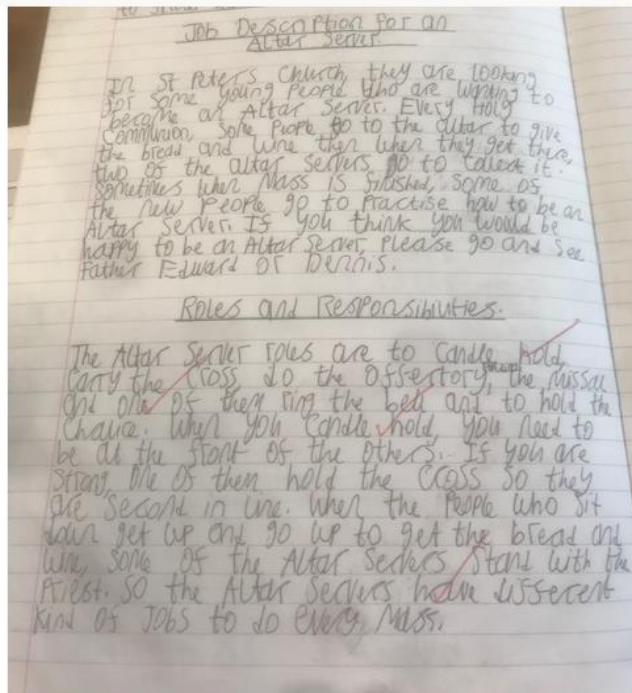 to
Job Description for an
Altar Server.
In St Peter's Church, they are looking
for some young people who are wanting to
become an Altar Server. Every Holy
Communion, some people go to the altar to give
the bread and wine then when they get there,
two of the altar servers go to collect it.
Sometimes when Mass is finished, some of
the new people go to practise how to be an
Altar Server. If you think you would be
happy to be an Altar Server, please go and see
Father Edward or Dennis.
Roles and Responsibilities.
The Altar Server roles are to candle hold,
carry the cross, do the offertory, the missal
and one of them ring the bell and to hold the
chalice. When you candle hold, you need to
be at the front of the others. If you are
strong, one of them hold the cross so they
are second in line. When the people who sit
down get up and go up to get the bread and
wine, some of the Altar Servers stand with the
Priest. So the Altar Servers have different
kind of jobs to do every Mass.